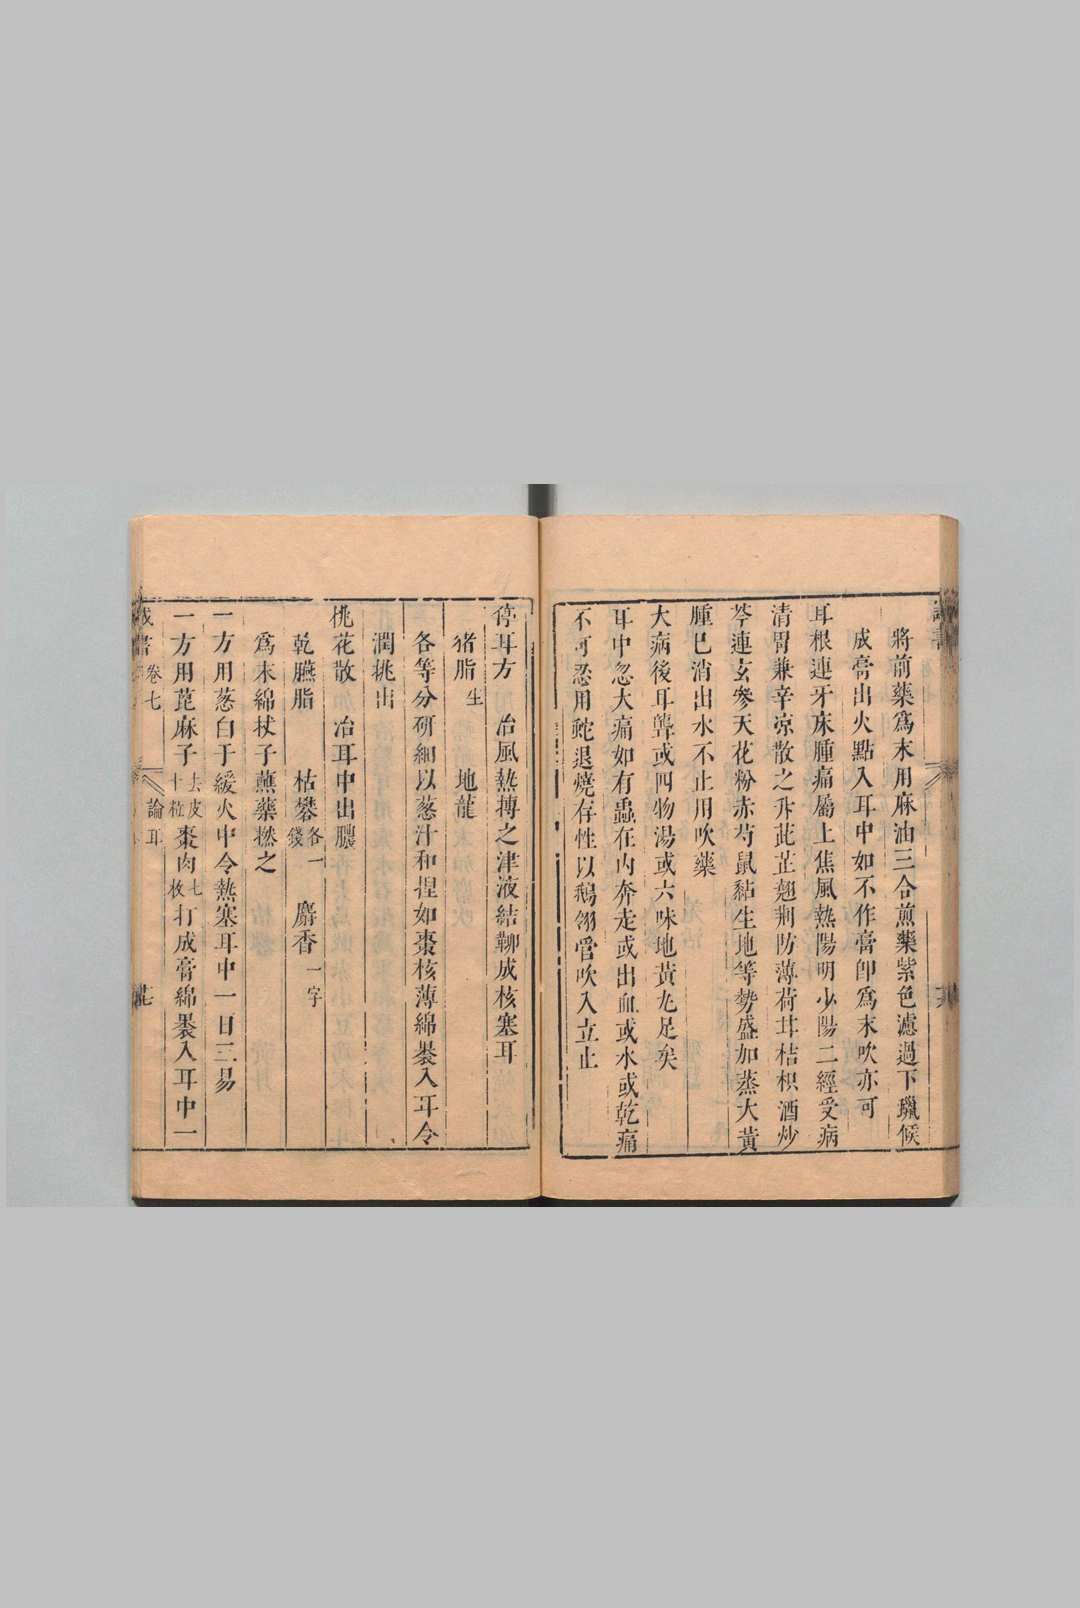 將前藥爲末用麻油三合煎藥紫色濾過下蠟候
成膏出火點入耳中如不作膏卽爲末吹亦可
耳根連牙床腫痛屬上焦風熱陽明少陽二經受病
清胃兼辛凉散之升茈芷翹荊防薄荷甘桔枳酒炒
芩連玄參天花粉赤芍鼠黏生地等勢盛加蒸大黃
腫巳消出水不止用吹藥
大病後耳聾或四物湯或六味地黃丸足矣
耳中忽大痛如有蟲在內奔走或出血或水或乾痛
不可忍用蛇退燒存性以鵝翎管吹入立止
停耳方 治風熱搏之津液結𩊱成核塞耳
猪脂生 地龍
各等分研細以葱汁和捏如棗核薄綿裝入耳令
潤挑出
桃花散 治耳中出膿
乾臙脂 枯礬各一錢 麝香一字
爲末綿杖子蘸藥撚之
一方用葱白于緩火中令熱塞耳中一日三易
一方用蓖麻子去皮十粒棗肉七枚打成膏綿裹入耳中一
卷七 論耳